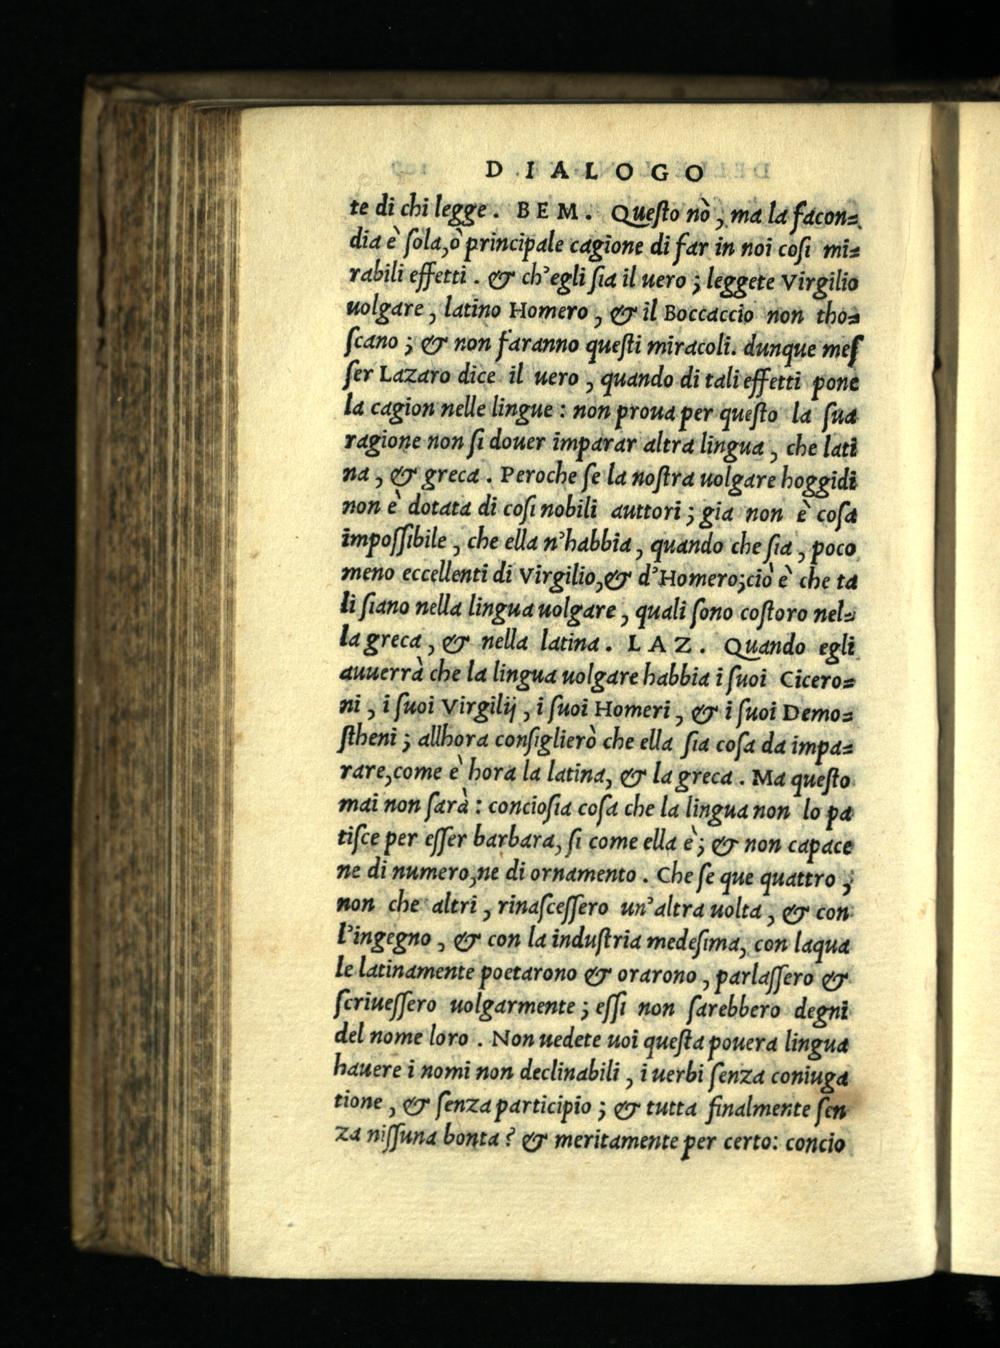 DIALOGO
te di chi legge. BEM. Queſto nò, ma la facon=
dia è ſola, ò principale cagione di far in noi coſi mi=
rabili effetti. & ch'egli ſia il uero; leggete Virgilio
uolgare, latino Homero, & il Boccaccio non tho=
ſcano; & non faranno queſti miracoli. dunque meſ
ſer Lazaro dice il uero, quando di tali effetti pone
la cagion nelle lingue: non proua per queſto la ſua
ragione non ſi douer imparar altra lingua, che lati
na, & greca. Peroche ſe la noſtra uolgare hoggidi
non è dotata di coſi nobili auttori; gia non è coſa
impoſſibile, che ella n'habbia, quando che ſia, poco
meno eccellenti di Virgilio, & d'Homero; ciò è che ta
li ſiano nella lingua uolgare, quali ſono coſtoro nel=
la greca, & nella latina. LAZ. Quando egli
auuerrà che la lingua uolgare habbia i ſuoi Cicero=
ni, i ſuoi Virgilij, i ſuoi Homeri, & i ſuoi Demo=
ſtheni; allhora conſiglierò che ella ſia coſa da impa=
rare, come è hora la latina, & la greca. Ma queſto
mai non ſarà: concioſia coſa che la lingua non lo pa
tiſce per eſſer barbara, ſi come ella è; & non capace
ne di numero, ne di ornamento. Che ſe que quattro,
non che altri, rinaſceſſero un'altra uolta, & con
l'ingegno, & con la induſtria medeſima, con laqua
le latinamente poetarono & orarono, parlaſſero &
ſcriueſſero uolgarmente; eſſi non ſarebbero degni
del nome loro. Non uedete uoi queſta pouera lingua
hauere i nomi non declinabili, i uerbi ſenza coniuga
tione, & ſenza participio; & tutta finalmente ſen
za niſſuna bonta? & meritamente per certo: concio